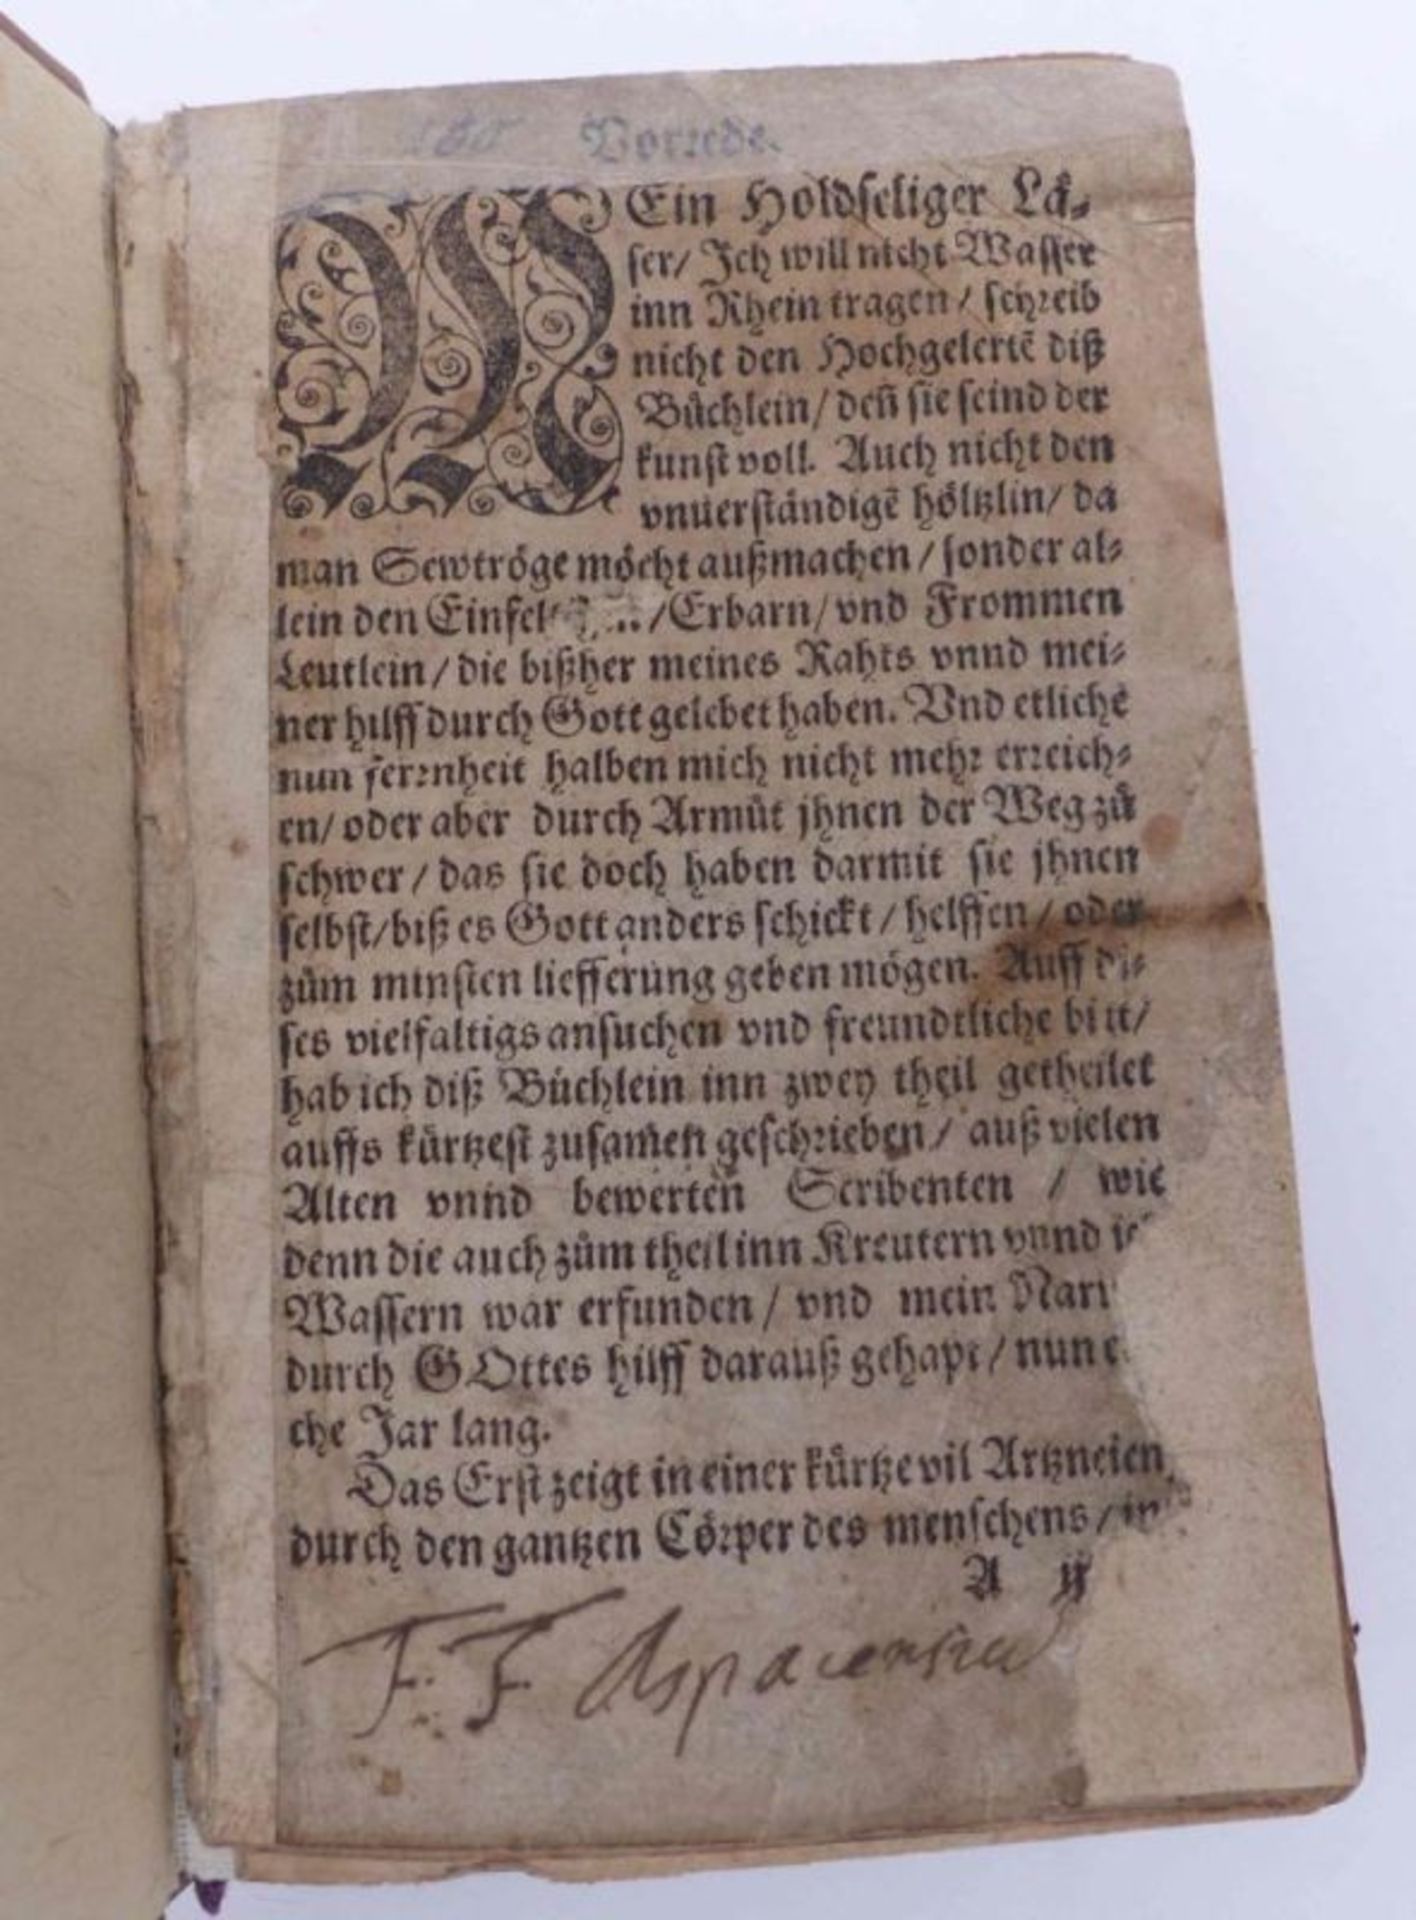 Vorrede.
MEin Holdseliger Lä⸗
ser/ Ich will nicht Wasser
inn Rhein tragen/ schreib
nicht den Hochgelertẽ diß
Bůchlein/ deñ sie seind der
kunst voll. Auch nicht den
vnuerständigẽ höltzlin/ da
man Sewtröge möcht außmachen/ sonder al⸗
lein den /Erbarn/ vnd Frommen
Leutlein/ die bißher meines Rahts vnnd mei⸗
ner hilff durch Gott gelebet haben. Vnd etlichẽ
nun ferrnheit halben mich nicht mehr erreich⸗
en/ oder aber durch Armůt jhnen der Weg zů
schwer/ das sie doch haben darmit sie jhnen
selbst/ biß es Gott anders schickt/ helffen/ oder
zům minsten liefferung geben mögen. Auff di⸗
ses vielfaltigs ansuchen vnd freundtliche bitt/
hab ich diß Büchlein inn zwey theil getheilet
auffs kürtzest zusamen geschrieben/ auß vielen
Alten vnnd bewerten Scribenten / wie
denn die auch zům theil inn Kreutern vnnd
Wassern war erfunden/ vnd mein
durch GOttes hilff darauß gehapt/ nun
che Jar lang.
Das Erst zeigt in einer kürtze vil Artzneien
durch den gantzen Cörper des menschens/ in
A ij
F. F.